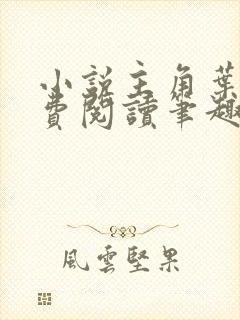 小說主角葉
費閱讀筆趣
風雲堅果